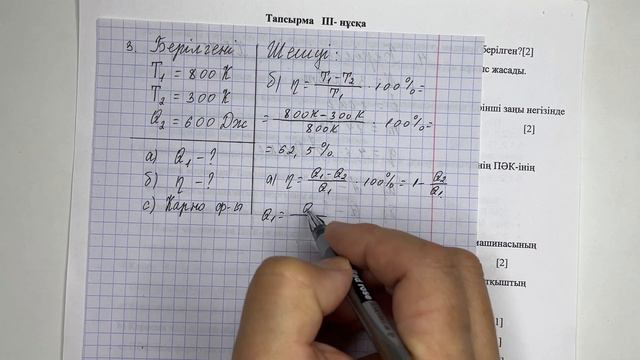 Тапсырма III- нұсқа
3. Берілгені
T₁ = 800 К
T₂ = 300 К
Q₂ = 600 Дж
а) Q₁ - ?
б) η - ?
с) Карно ф-ы
Шешуі:
б) η = (T₁ - T₂)/T₁ · 100% =
= (800К - 300К)/800К · 100% =
= 62,5%
а) η = (Q₁ - Q₂)/Q₁ · 100% = 1 - Q₂/Q₁
Q₁ = Q
берілген?[2]
жасады.
заңы негізінде
[2]
ПӘК-інің
машинасының
[2]